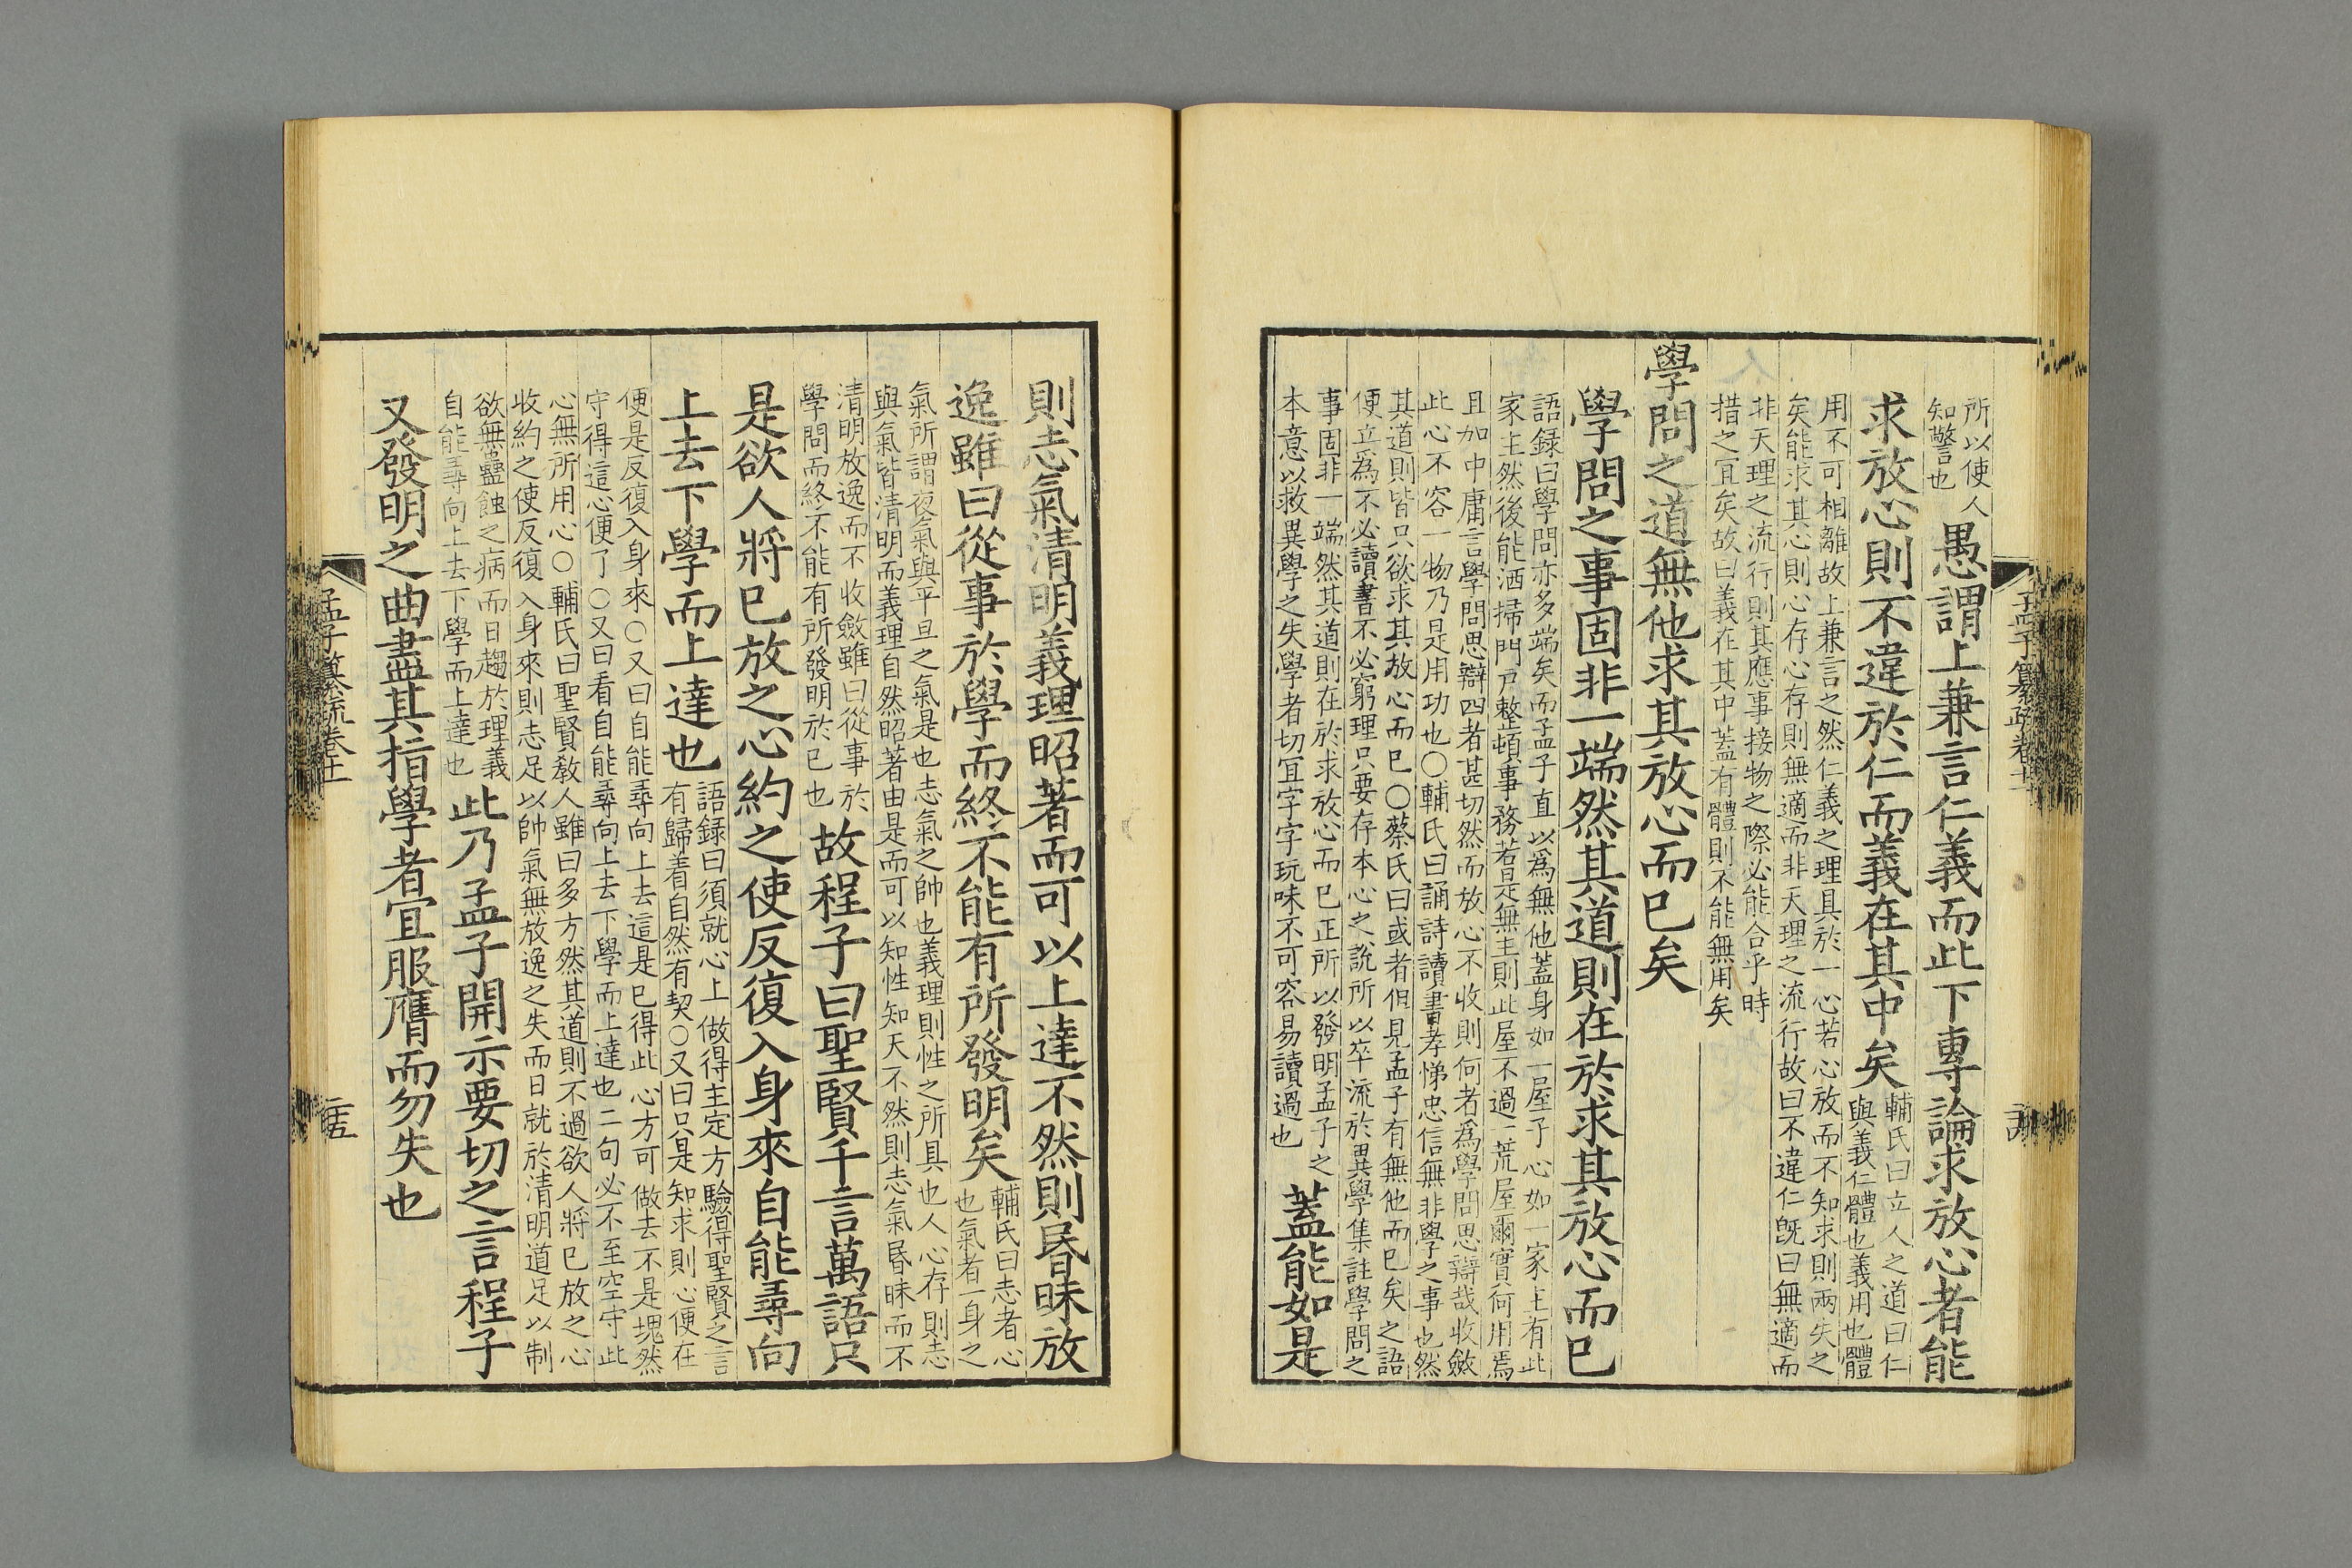 所以使人
知警言也
愚謂上兼言仁義而此下專論求放心者能
求放心則不違於仁而義在其中矣
輔氏曰立人之道曰仁
與義仁體也義用也體
用不可相離故上兼言之然仁義之理具於一心若心放而不知求則兩失之
矣能求其心則心存心存則無適而非天理之流行故曰不違仁旣曰無適而
非天理之流行則其應事接物之際必能合乎時
措之冝矣故曰義在其中蓋有體則不能無用矣
學問之道無他求其放心而已矣
學問之事固非一端然其道則在於求其放心而已
語録曰學問亦多端矣而孟子直以爲無他蓋身如一屋子心如一家主有此
家主然後能洒掃門戶整頓事務若是無主則此屋不過一荒屋爾實何用焉
且如中庸言學問思辯四者甚切然而放心不收則何者爲學問思辯哉收斂
此心不容一物乃是用功也○輔氏曰誦詩讀書孝悌忠信無非學之事也然
其道則皆只欲求其放心而已○蔡氏曰或者但見孟子有無他而已矣之語
便立爲不必讀書不必窮理只要存本心之說所以卒流於異學集註學問之
事固非一端然其道則在於求放心而已正所以發明孟子之
本意以救異學之失學者切冝字字玩味不可容易讀過也
蓋能如是
則志氣清明義理昭著而可以上達不然則昬昧放
逸雖曰從事於學而終不能有所發明矣
輔氏曰志者心
也氣者一身之
氣所謂夜氣與平旦之氣是也志氣之帥也義理則性之所具也人心存則志
與氣皆清明而義理自然昭著由是而可以知性知天不然則志氣昬昧而不
清明放逸而不收斂雖曰從事於
學問而終不能有所發明於已也
故程子曰聖賢千言萬語只
是欲人將已放之心約之使反復入身來自能尋向
上去下學而上達也
語録曰須就心上做得主定方驗得聖賢之言
有歸着自然有契○又曰只是知求則心便在
便是反復入身來○又曰自能尋向上去這是已得此心方可做去不是塊然
守得這心便了○又曰看自能尋向上去下學而上達也二句必不至空守此
心無所用心○輔氏曰聖賢敎人雖曰多方然其道則不過欲人將已放之心
收約之使反復入身來則志足以帥氣無放逸之失而日就於清明道足以制
欲無蠱蝕之病而日趨於理義
自能尋向上去下學而上達也
此乃孟子開示要切之言程子
又發明之曲盡其指學者宜服膺而勿失也
孟子纂疏卷十一